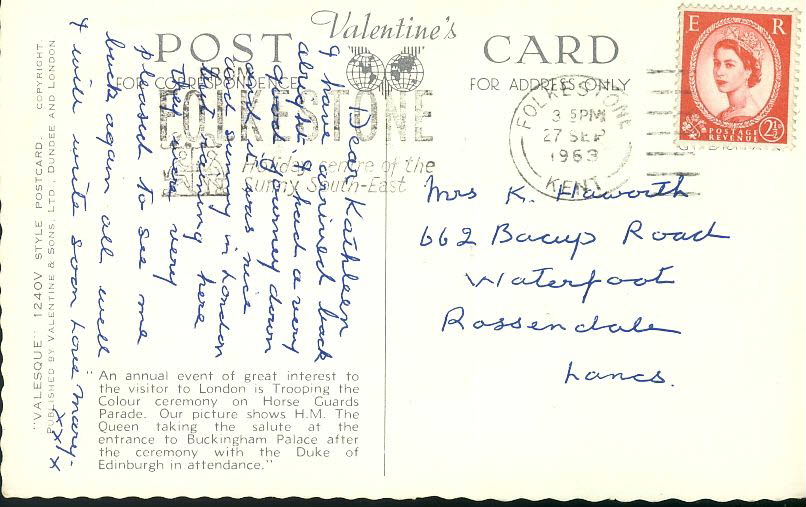 Valentine's
POST CARD
FOR CORRESPONDENCE
FOR ADDRESS ONLY
FOLKESTONE
Holiday centre of the
Sunny South-East
FOLKESTONE
3 - PM
27 SEP
1963
KENT
E R
POSTAGE
REVENUE
2½D
Dear Kathleen
I have arrived back
alright & had a very
good journey down
and it was nice
and sunny in London
but raining here
they were very
pleased to see me
back again all well
& will write soon love Mary
xxxx
Mrs K. Haworth
662 Bacup Road
Waterfoot
Rossendale
Lancs.
"An annual event of great interest to
the visitor to London is Trooping the
Colour ceremony on Horse Guards
Parade. Our picture shows H.M. The
Queen taking the salute at the
entrance to Buckingham Palace after
the ceremony with the Duke of
Edinburgh in attendance."
"VALESQUE" 1240V STYLE POSTCARD. COPYRIGHT
PUBLISHED BY VALENTINE & SONS, LTD., DUNDEE AND LONDON